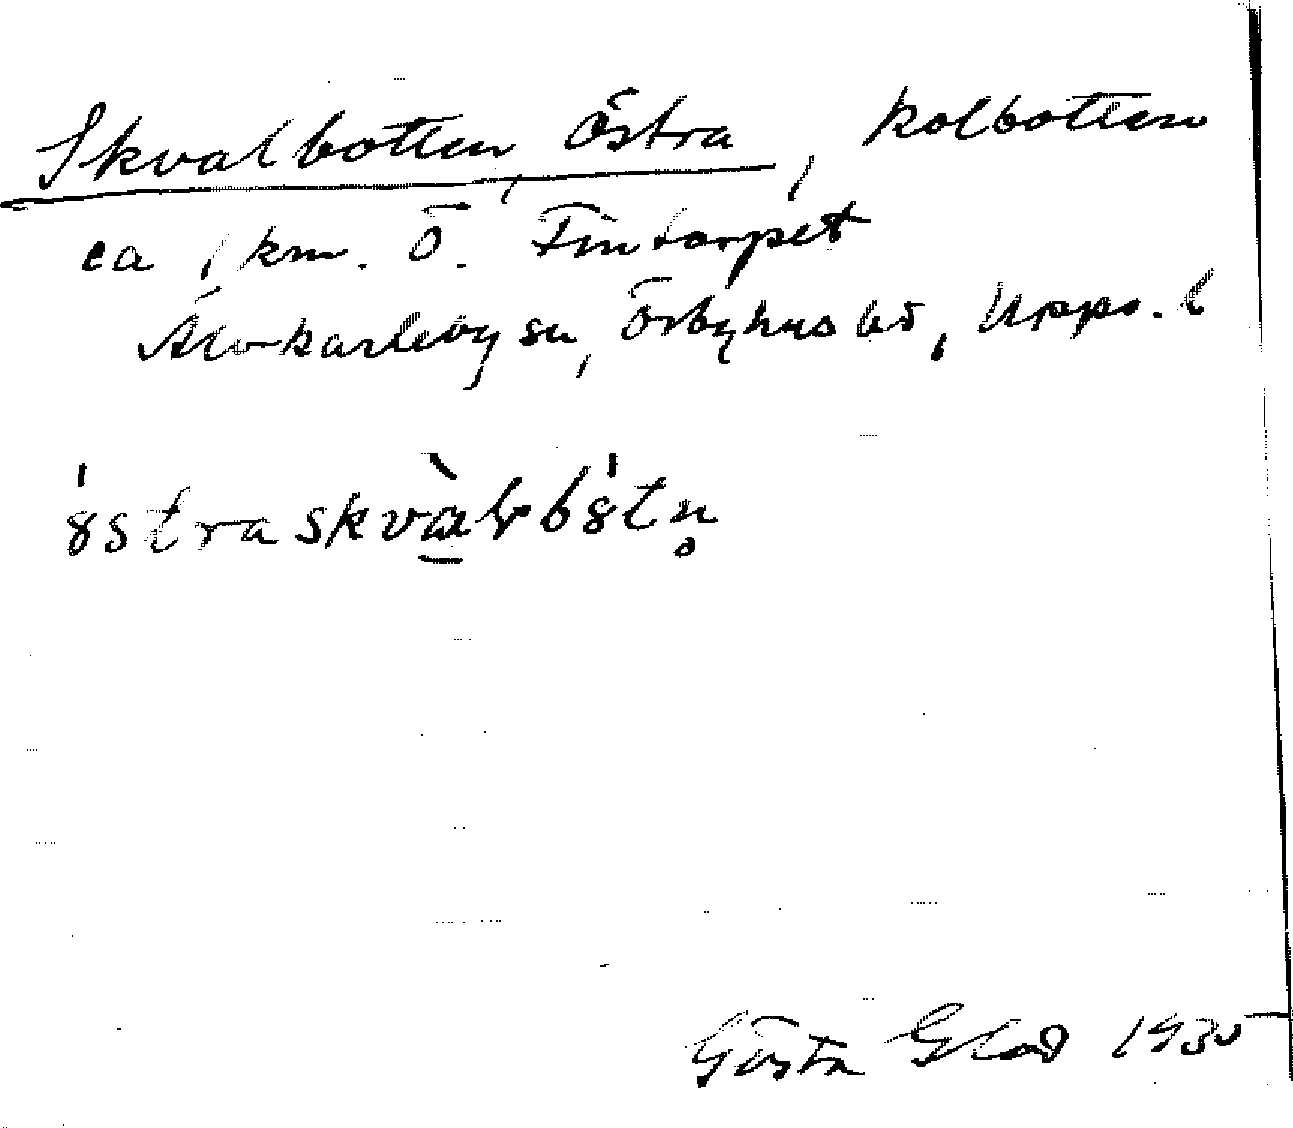 Skvalbotten, Östra, kolbotten
ca 1 km. Ö. Fintorpet
Älvkarleby sn, Örbyhus hd, Upps. l
östraskvalbòtn̥
Gösta Glad 1935